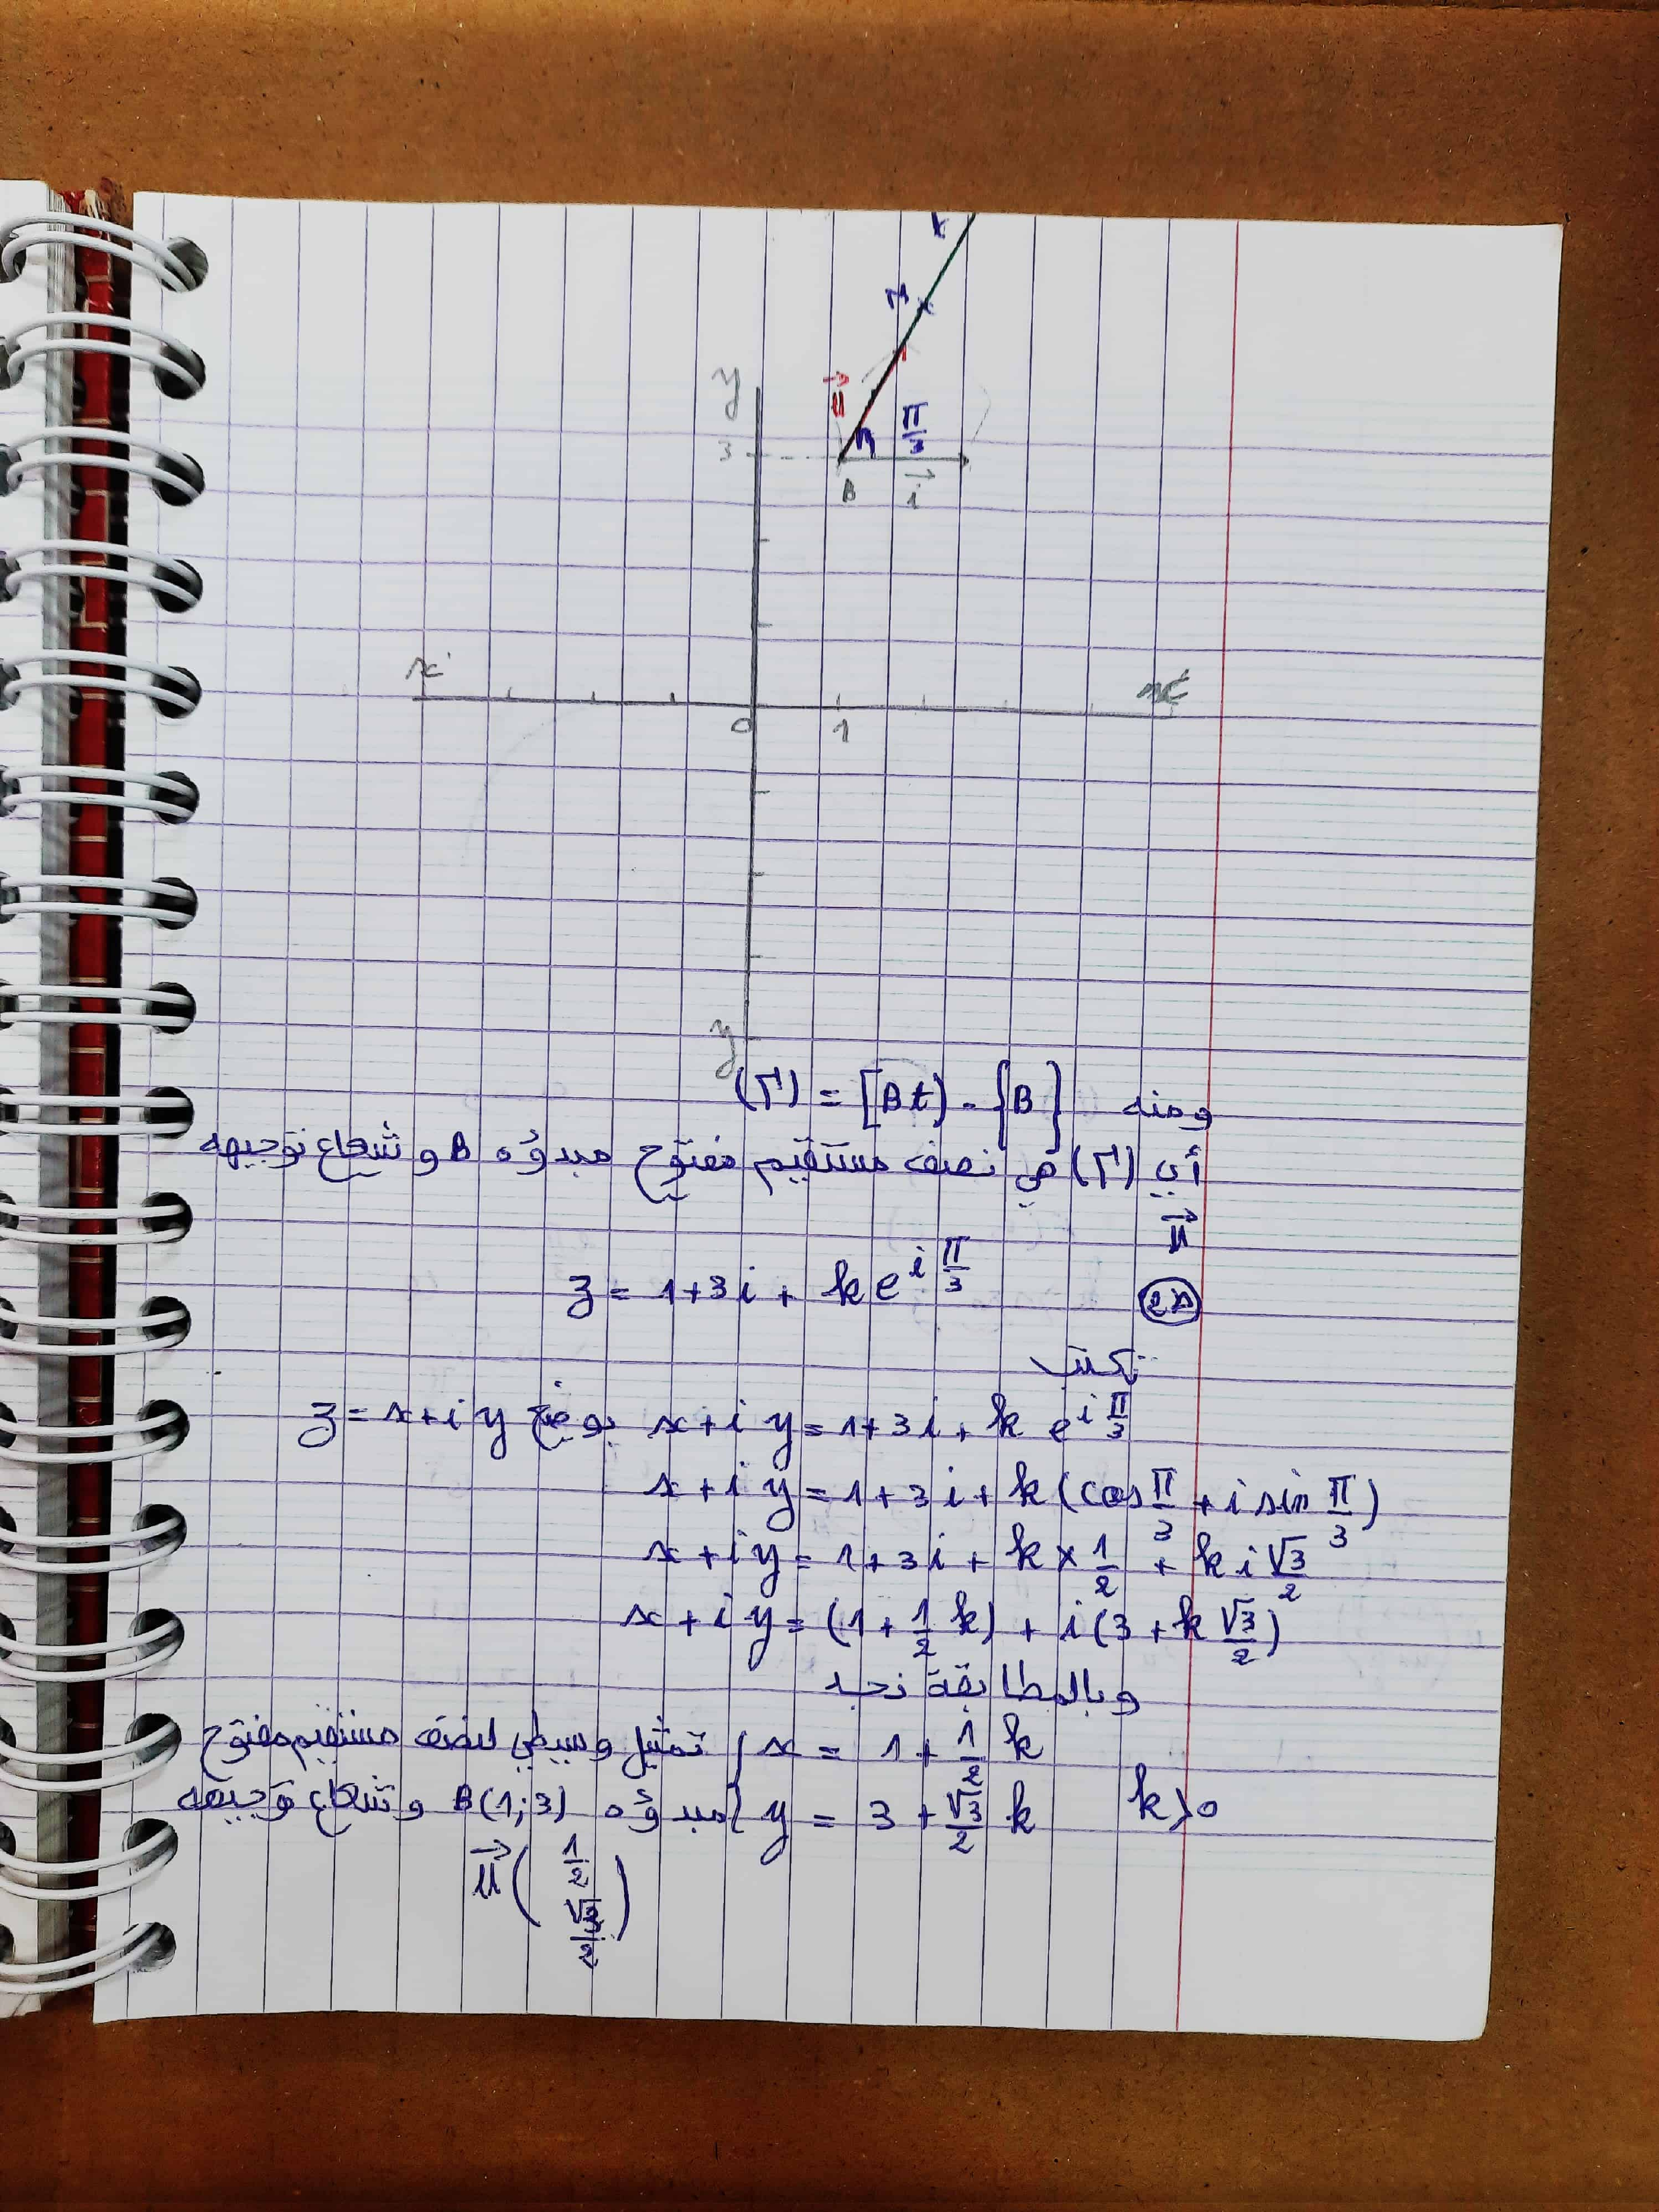 t
M
y
u⃗
π/3
3
B
i⃗
x'
x
0
1
y'
ومنه (Γ) = [Bt) - {B}
أي (Γ) هي نصف مستقيم مفتوح مبدؤه B و شعاع توجيهه
u⃗
z = 1+3i + k e^{i π/3}
تكتب
x+iy = 1+3i + k e^{i π/3} بوضع z = x+iy
x+iy = 1+3i + k (cos π/3 + i sin π/3)
x+iy = 1+3i + k × 1/2 + k i √3/2
x+iy = (1 + 1/2 k) + i (3 + k √3/2)
وبالمطابقة نجد
x = 1 + 1/2 k تمثيل وسيطي لنصف مستقيم مفتوح
k>0 y = 3 + √3/2 k مبدؤه B(1;3) و شعاع توجيهه
u⃗ (1/2 √3/2)